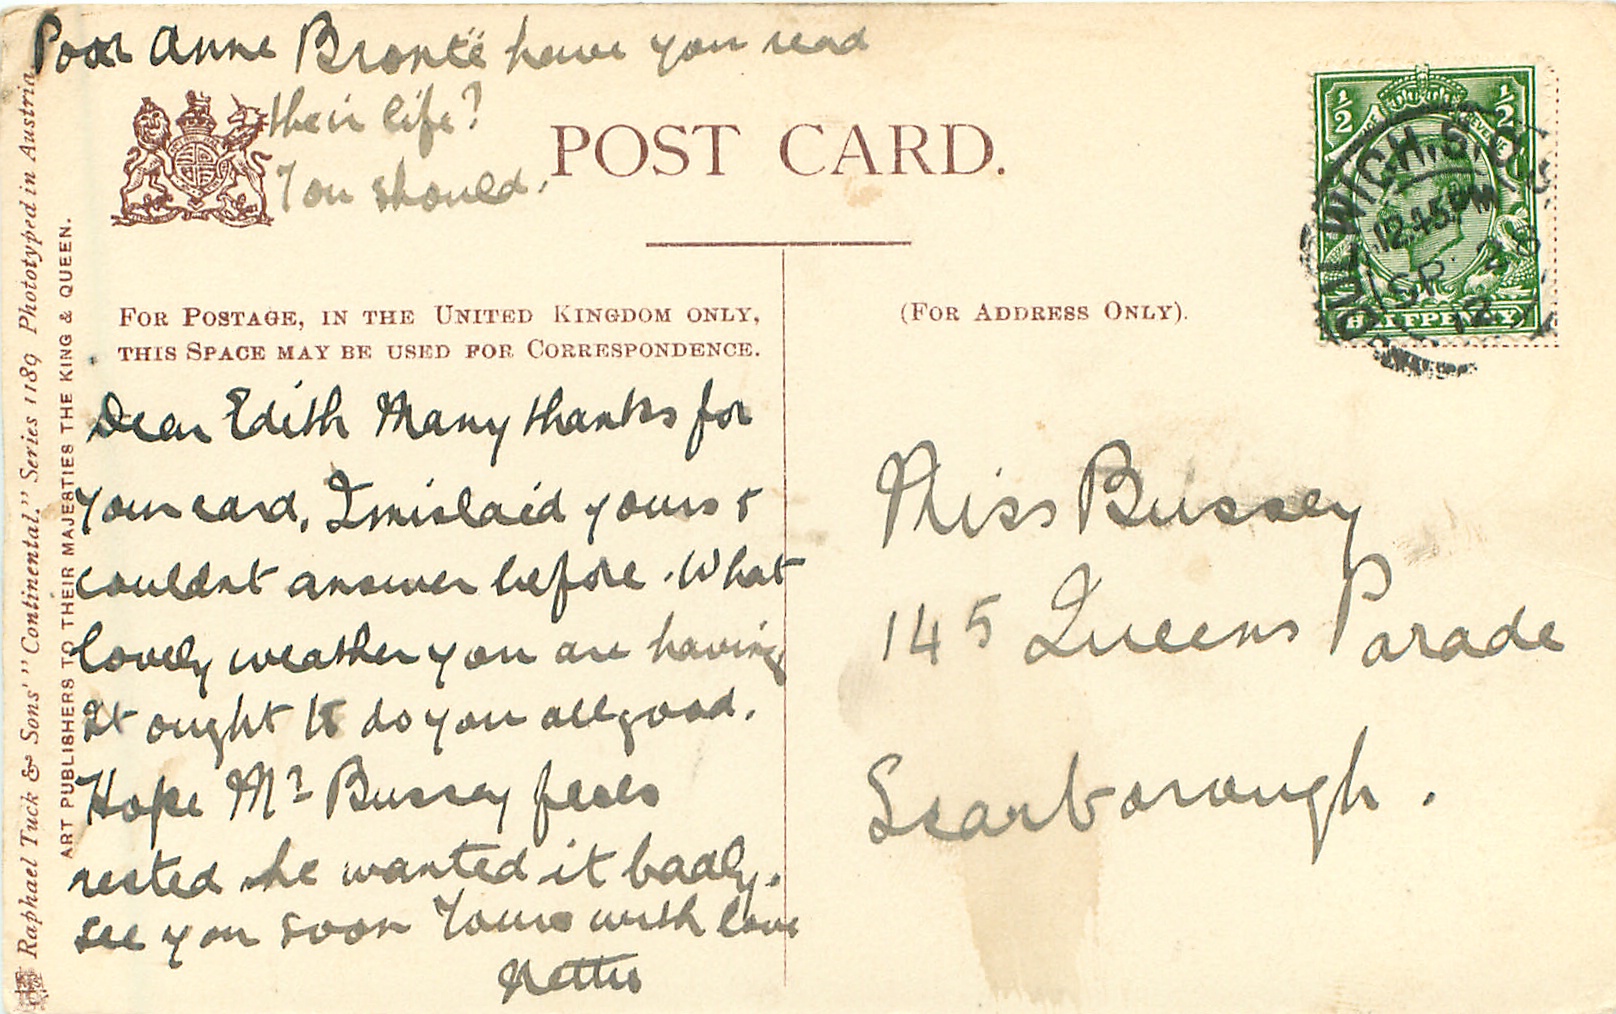 Poor Anne Brontë have you read
their life?
You should.
POST CARD.
FOR POSTAGE, IN THE UNITED KINGDOM ONLY,
THIS SPACE MAY BE USED FOR CORRESPONDENCE.
(FOR ADDRESS ONLY).
Dear Edith Many thanks for
your card, I mislaid yours &
couldnt answer before. What
lovely weather you are having
It ought to do you all good.
Hope Mr Bussey feels
rested he wanted it badly.
see you soon Yours with love
Nettie
Miss Bussey
145 Queens Parade
Scarborough.
Raphael Tuck & Sons' "Continental." Series 1189 Phototyped in Austria
ART PUBLISHERS TO THEIR MAJESTIES THE KING & QUEEN.
½ ½
HALFPENNY
DULWICH.S.O
12.45PM
SP 28
12